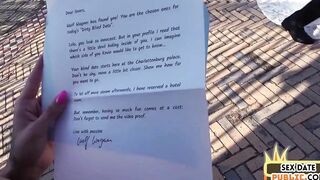 Dear lovers,
Wolf Wagner has found you! You are the chosen ones for
today's "Dirty Blind Date".
Lola, you look so innocent. But in your profile I read that
there's a little devil hiding inside of you. I can imagine
which side of you Kevin would like to get to know...
Your blind date starts here at the Charlottenburg palace.
Don't be shy, move a little bit closer. Show me how far
you want to go.
To let off more steam afterwards, I have reserved a hotel
room.
But remember, having so much fun comes at a cost:
Don't forget to send me the video proof.
Live with passion
Wolf Wagner
SEX-DATE
PUBLIC.CO